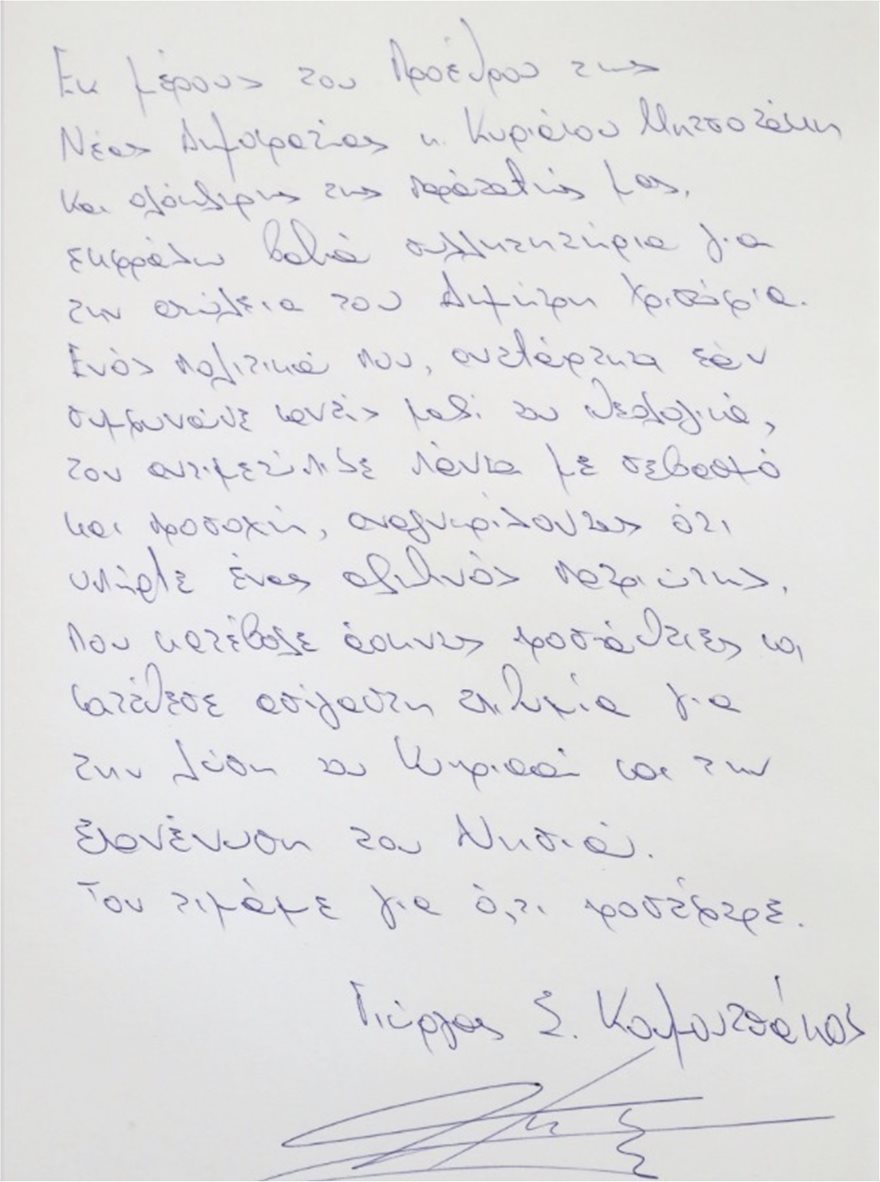 Εκ μέρους του Προέδρου της
Νέας Δημοκρατίας κ. Κυριάκου Μητσοτάκη
και ολόκληρης της παράταξής μας,
εκφράζω βαθιά συλλυπητήρια για
την απώλεια του Δημήτρη Χριστόφια.
Ενός πολιτικού που, ανεξάρτητα εάν
συμφωνούσε κανείς μαζί του ιδεολογικά,
τον αντιμετώπιζε πάντα με σεβασμό
και προσοχή, αναγνωρίζοντας ότι
υπήρξε ένας αληθινός πατριώτης,
που κατέβαλε άοκνες προσπάθειες και
κατέθεσε ασίγαστη επιθυμία για
την λύση του Κυπριακού και την
επανένωση του Νησιού.
Τον τιμάμε για ό,τι προσέφερε.
Γιώργος Σ. Κουμουτσάκος